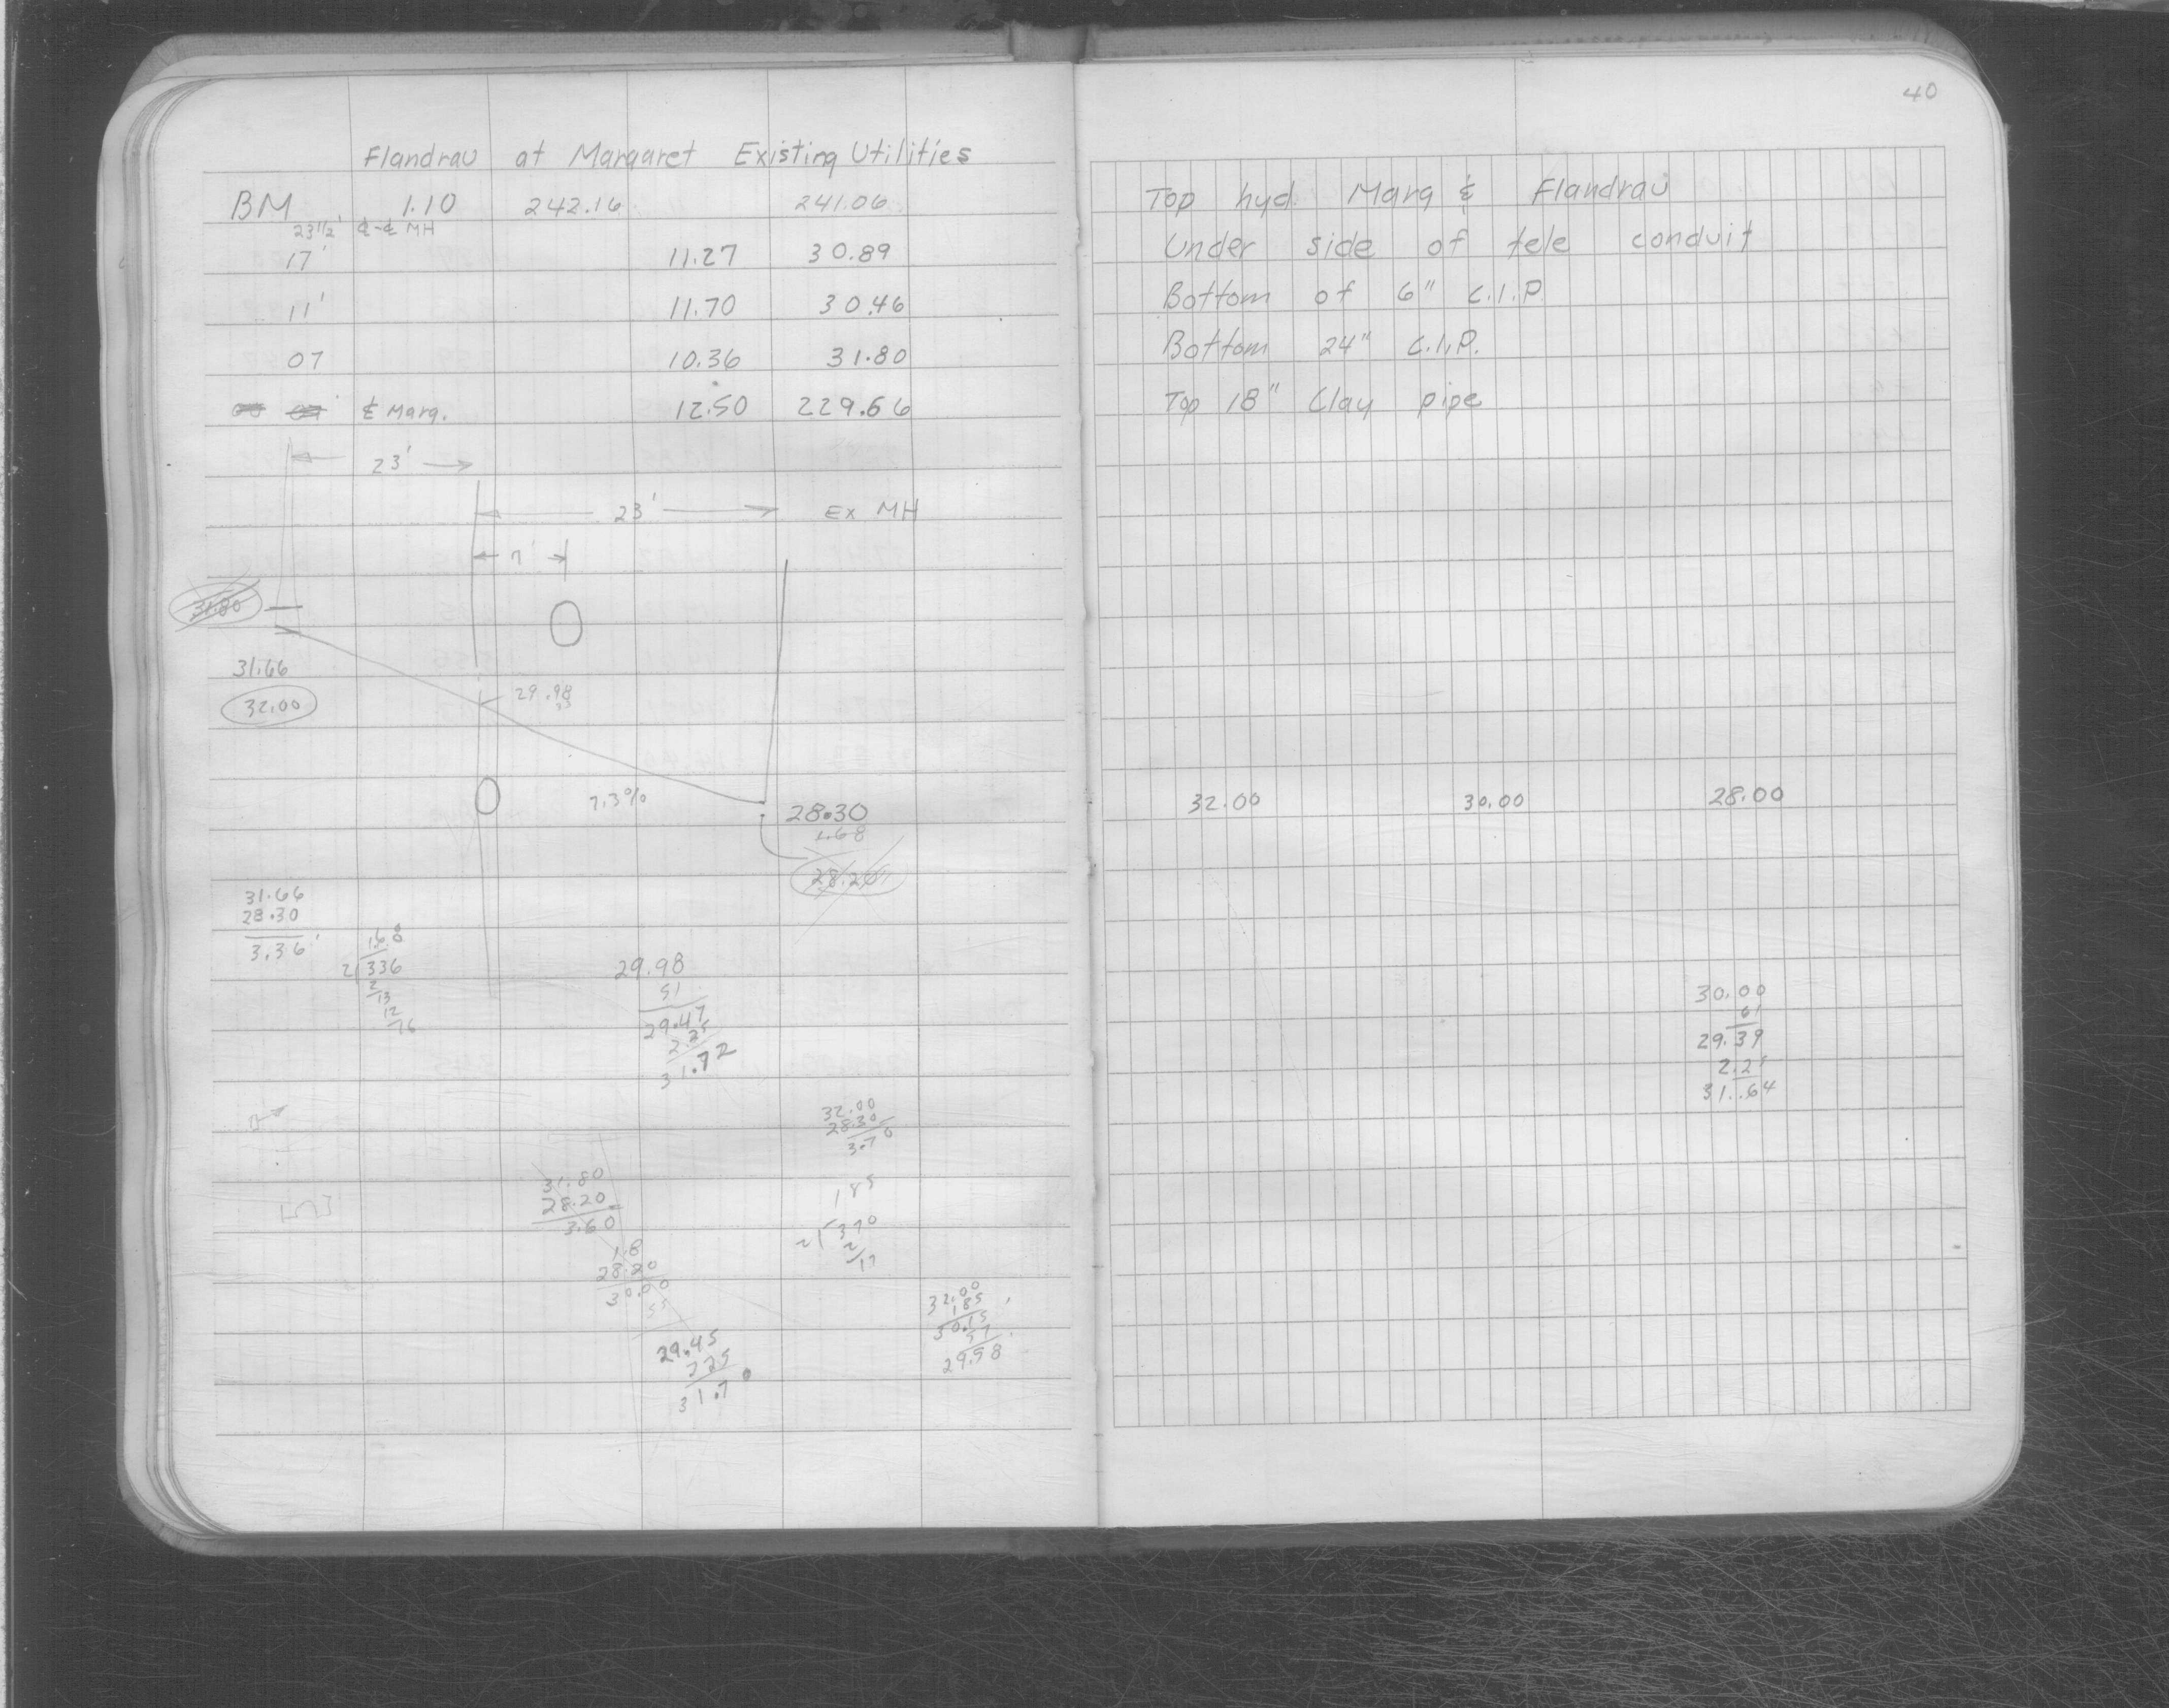 40
Flandrau at Margaret Existing Utilities
BM 1.10 242.16 241.06 Top hyd. Marg & Flandrau
23 1/2' ℄-℄ MH
17' 11.27 30.89 Under side of tele conduit
11' 11.70 30.46 Bottom of 6" C.I.P
07 10.36 31.80 Bottom 24" C.I.P.
℄ Marg. 12.50 229.66 Top 18" Clay pipe
23'
23' Ex MH
7'
31.80
31.66
29.98
32.00
7.3%
28.30
1.68
28.20
32.00 30.00 28.00
31.66
28.30
3.36'
1.68
2 336
2
13
12
16
29.98
51
29.47
2.25
31.72
30.00
61
29.39
2.25
31.64
32.00
28.30
3.70
31.80
28.20
3.60
185
2 370
2
17
1.8
28.20
30.00
55
29.45
225
31.70
32.00
185
30.15
57
29.58